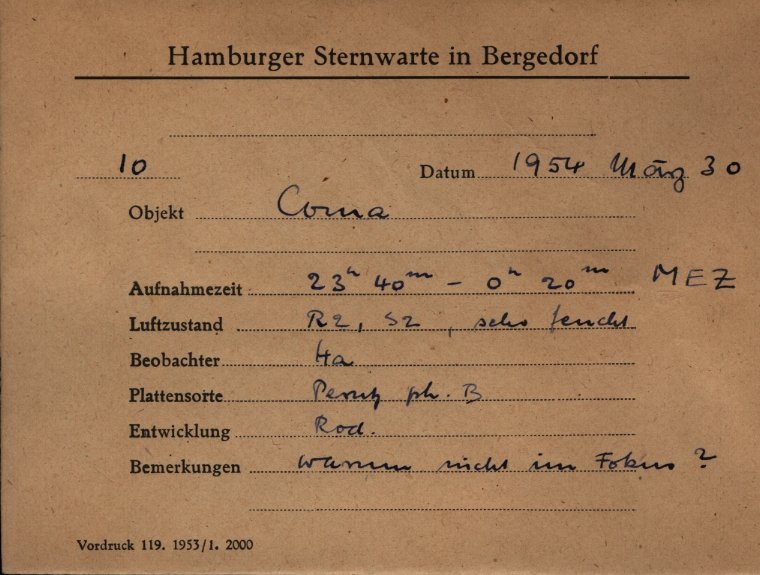 Hamburger Sternwarte in Bergedorf
10 Datum 1954 März 30
Objekt Coma
Aufnahmezeit 23h 40m – 0h 20m MEZ
Luftzustand R2, S2, sehr feucht
Beobachter Ha
Plattensorte Perutz ph. B
Entwicklung Rod.
Bemerkungen warum nicht im Fokus?
Vordruck 119. 1953/1. 2000